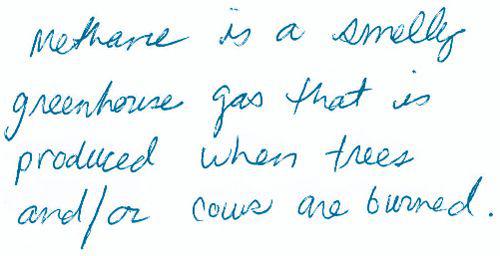 Methane is a smelly
greenhouse gas that is
produced when trees
and/or cows are burned.